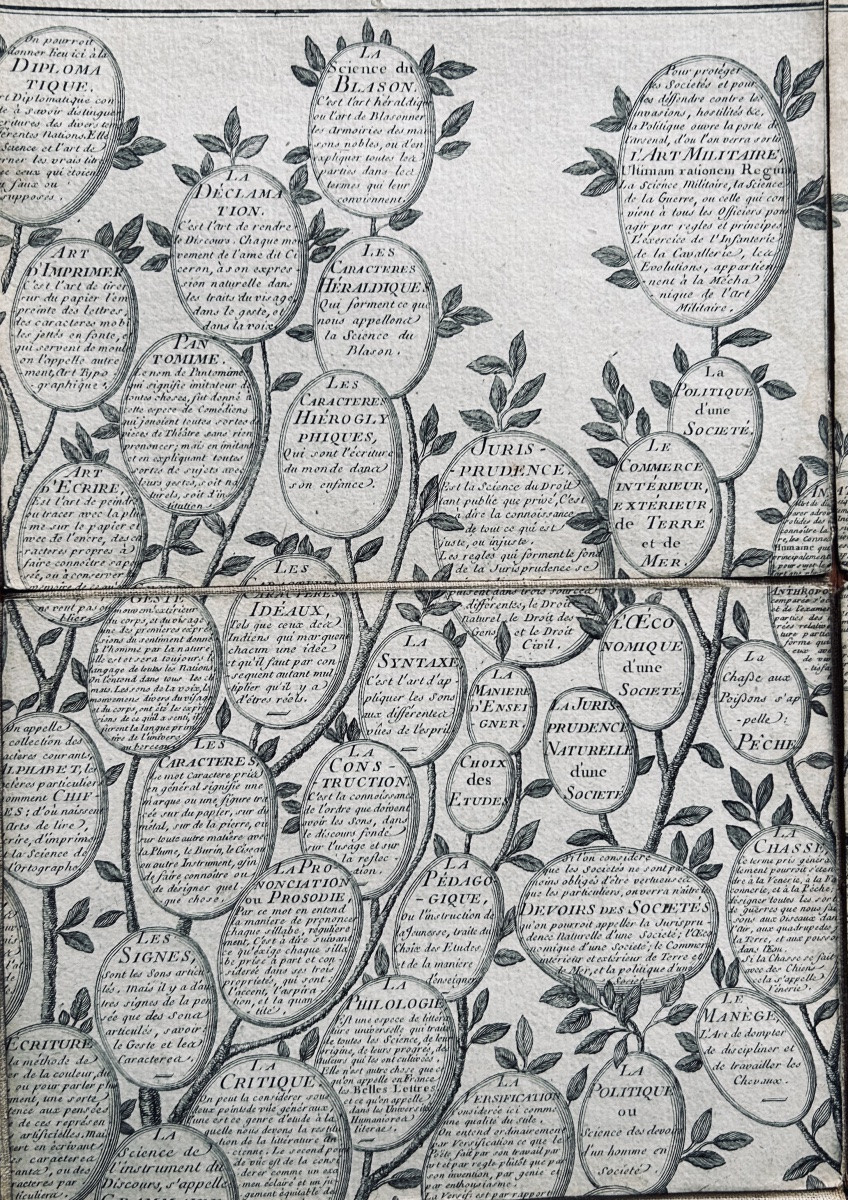 On pourroit
donner lieu ici à la
DIPLOMA
TIQUE.
Diplomatique con
à savoir distinguer
écritures des divers
différentes Nations. Elle
Science et l'art de
les vrais
ceux qui étoient
faux ou
supposés.
LA
Science du
BLASON.
C'est l'art héraldique
ou l'art de Blasonner
les Armoiries des mai
sons nobles, ou d'en
expliquer toutes les
parties dans les
termes qui leur
conviennent.
Pour protéger
les Sociétés et pour
les diffendre contre les
invasions, hostilités &c,
la Politique ouvre la porte de
l'arsenal, d'ou l'on verra sortir
L'ART MILITAIRE,
Ultimam rationem Regum
La Science Militaire, la Science
de la Guerre, ou celle qui con
vient à tous les Officiers pour
agir par regles et principes
L'exercice de l'Infanterie
de la Cavallerie, les
Evolutions, appartien
nent à la Mécha
nique de l'Art
Militaire.
LA
DÉCLAMA
TION.
C'est l'art de rendre
le Discours. Chaque mou
vement de l'ame dit Ci
ceron, à son expres
sion naturelle dans
les traits du visage
dans le geste, et
dans la voix.
ART
D'IMPRIMER
C'est l'art de tirer
sur du papier l'em
preinte des lettres,
des caracteres mobi
les jettés en fonte, et
qui servent de moul
on l'appelle autre
ment, Art Typo
graphique.
LES
CARACTERES
HÉRALDIQUES
Qui forment ce que
nous appellons
la Science du
Blason.
PAN
TOMIME.
Le nom de Pantomime
qui signifie imitateur de
toutes choses, fut donné à
cette espece de Comédiens
qui jouoient toutes sortes de
pieces de Théâtre sans rien
prononcer; mais en imitant
et en expliquant toutes
sortes de sujets avec
leurs gestes, soit na
turels, soit d'ins
titution.
LES
CARACTERES
HIÉROGLY
PHIQUES,
Qui sont l'écriture
du monde dans
son enfance.
La
POLITIQUE
d'une
SOCIETÉ.
LE
COMMERCE
INTÉRIEUR,
EXTÉRIEUR,
de TERRE
et de
MER.
JURIS-
-PRUDENCE.
Est la Science du Droit
tant public que privé, C'est
à dire la connoissance
de tout ce qui est
juste, ou injuste.
Les regles qui forment le fond
de la Jurisprudence se
puisent dans trois sources
différentes, le Droit
naturel, le Droit des
Gens, et le Droit
Civil.
ART
D'ECRIRE,
Est l'art de peindre
ou tracer avec la plu
me sur le papier et
avec de l'encre, des ca
racteres propres à
faire connoître sa
sée, ou à conserver
mémoire de
veut pas ou
blier.
GESTE,
mouvem. extérieur
du corps, et du visage
une des premieres expres
sions du sentiment donné
à l'homme par la nature,
elle est et sera toujours le
langage de toutes les Nations
On l'entend dans tous les cli
mats. Les sons de la voix, les
mouvemens divers du visage
et du corps, ont été les expres
sions de ce qu'il a senti, et
furent la langue primi
tive de l'univers
au berceau.
LES
CARACTERES
IDÉAUX,
Tels que ceux des
Indiens qui marquent
chacun une idée
et qu'il faut par con
sequent autant mul
tiplier qu'il y a
d'êtres réels.
LA
SYNTAXE
C'est l'art d'ap-
pliquer les Sons
aux différentes
vües de l'esprit
LA
MANIERE
D'ENSEI
GNER.
L'ŒCO
NOMIQUE
d'une
SOCIETÉ
LA JURIS-
PRUDENCE
NATURELLE
d'une
SOCIETÉ
La
Chasse aux
Poissons s'ap
-pelle:
PÊCHE
ANTHROPO
On appelle
collection des
caracteres courants,
ALPHABET, les
caracteres particuliers
nomment CHIF-
ES: d'où naissent
Arts de lire,
écrire, d'imprimer
et la Science de
l'ortographe.
LES
CARACTERES,
Le mot Caractere pris
en général signifie une
marque ou une figure tra
cée sur du papier, sur du
métal, sur de la pierre, ou
sur toute autre matière avec
la Plume, le Burin, le Ciseau
ou autre Instrument, afin
de faire connoître ou
de designer quel
que chose.
LA
CONS-
TRUCTION.
C'est la connoissance
de l'ordre que doivent
avoir les Sons, dans
le discours fondé
sur l'usage et sur
la reflec
xion.
CHOIX
des
ETUDES
LA PRO-
NONCIATION
ou PROSODIE,
Par ce mot on entend
la maniere de prononcer
chaque sillabe, réguliere
ment, C'est à dire suivant
ce qu'exige chaque silla
be prise à part et con
sidérée dans ses trois
propriétés, qui sont
l'accent, l'aspira
tion, et la quan
tité.
LA
PÉDAGO
-GIQUE,
Ou l'instruction de
la Jeunesse, traite du
Choix des Etudes
et de la maniere
d'enseigner
Si l'on considere
que les Sociétés ne sont pas
moins obligés d'être vertueuses
que les particuliers, on verra naître les
DEVOIRS DES SOCIETÉS
qu'on pourroit appeller la Jurispru-
dence Naturelle d'une Société; l'Œco
nomique d'une Société; le Commerce
intérieur et extérieur de Terre et
de Mer, et la politique d'une
Société
LA
CHASSE,
Ce terme pris généra
lement pourroit s'éten
dre à la Vénerie, à la Fau
connerie, et à la Pêche;
désigner toutes les sortes
de guerres que nous fai
sons aux oiseaux dans
l'air, aux quadrupedes
la Terre, et aux poissons
dans l'eau.
Si la Chasse se fait
avec des Chiens
cela s'appelle
Vénerie.
LES
SIGNES,
sont les Sons articu
lés. Mais il y a d'au
tres signes de la pen
sée que des Sons
articulés, savoir
le Geste et les
Caracteres.
LA
PHILOLOGIE
Est une espece de littéra
ture universelle qui traite
de toutes les Science, de leur
origine, de leurs progrès, des
auteurs qui les ont cultivées.
Elle n'est autre chose que ce
qu'on appelle en France
les Belles Lettres
et ce qu'on appelle
dans les Universités
Humaniores
literae.
LE
MANÈGE,
L'Art de dompter
de discipliner et
de travailler les
Chevaux.
ECRITURE
la méthode de
de la couleur, du
ou pour parler plus
ment, une sorte
aux pensées
de ces représen
artificielles. Mais
en écrivant
caracteres
des
caracteres par
ticuliers.
LA
CRITIQUE
On peut la considérer sous
deux points de vüe généraux;
l'une est ce genre d'étude à la
quelle nous devons la restitu
tion de la littérature an
cienne. Le second point
de vüe est de la consi
dérer comme un exa
men éclairé et un ju
gement équitable des
LA
Science de
l'instrument du
Discours, s'appelle
GRAMMAIRE
LA
VERSIFICATION
Considérée ici comme
une qualité du stile.
On entend ordinairement
par Versification ce que le
Poëte fait par son travail par
art et par regle plutôt que par
son invention, par génie et
par enthousiasme.
La Versifi est par rapport
LA
POLITIQUE
ou
Science des devoirs
d'un homme en
Société.